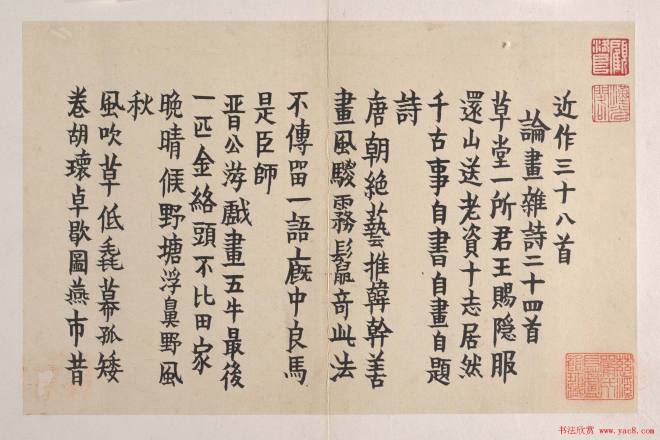 近作三十八首
論畫雜詩二十四首
草堂一所君王賜隱服
還山送老資十志居然
千古事自書自畫自題
詩
唐朝絶藝推韓幹善
畫風駿霧鬛奇此法
不傳留一語廄中良馬
是臣師
晋公游戲畫五牛最後
一匹金絡頭不比田家
晚晴候野塘浮鼻野風
秋
風吹草低毳幕孤矮
卷胡瓌卓歇圖燕市昔
书法欣赏
www.yac8.com